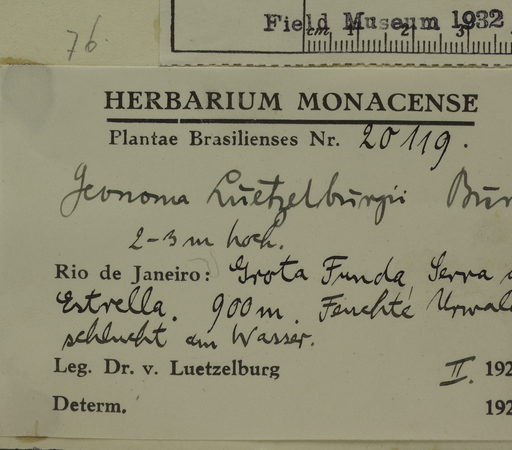 76
Field Museum 1932
cm 1 2 3
HERBARIUM MONACENSE
Plantae Brasilienses Nr. 20119.
Geonoma Luetzelburgii Bur
2-3 m hoch.
Rio de Janeiro: Grota Funda, Serra d
Estrella. 900 m. Feuchte Urwal
schlucht am Wasser.
Leg. Dr. v. Luetzelburg II. 192
Determ. 192